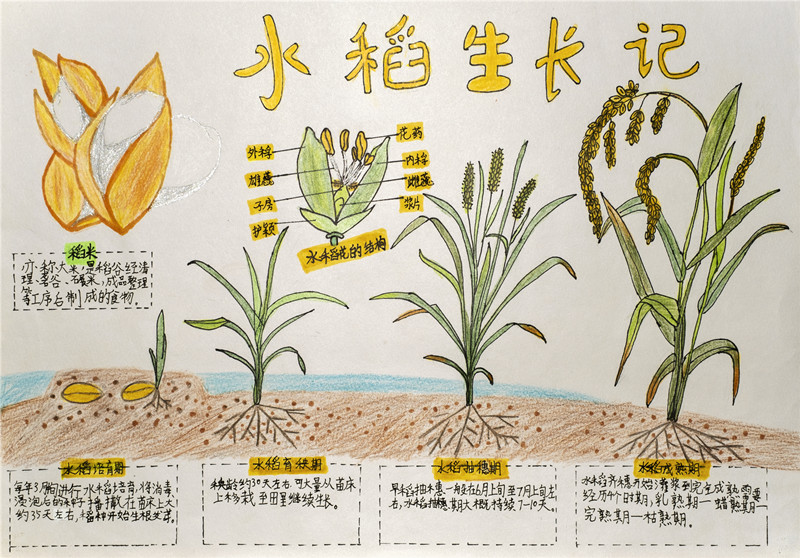 水稻生长记
外稃
雄蕊
子房
护颖
花药
内稃
雌蕊
浆片
水稻花的结构
稻米
亦称大米,是稻谷经清
理、砻谷、碾米,成品整理
等工序后制成的食物
水稻培育期
每年3月间进行水稻培育,将消毒
浸泡后的种子播撒在苗床上大
约35天左右,稻种开始生根发芽。
水稻育秧期
秧龄约30天左右,可大量从苗床
上移栽至田里继续生长。
水稻抽穗期
早稻抽穗一般在6月上旬至7月上旬左
右,水稻抽穗期大概持续7-10天。
水稻成熟期
水稻齐穗开始灌浆到完全成熟需要
经历4个时期,乳熟期一蜡熟期一
完熟期一枯熟期。